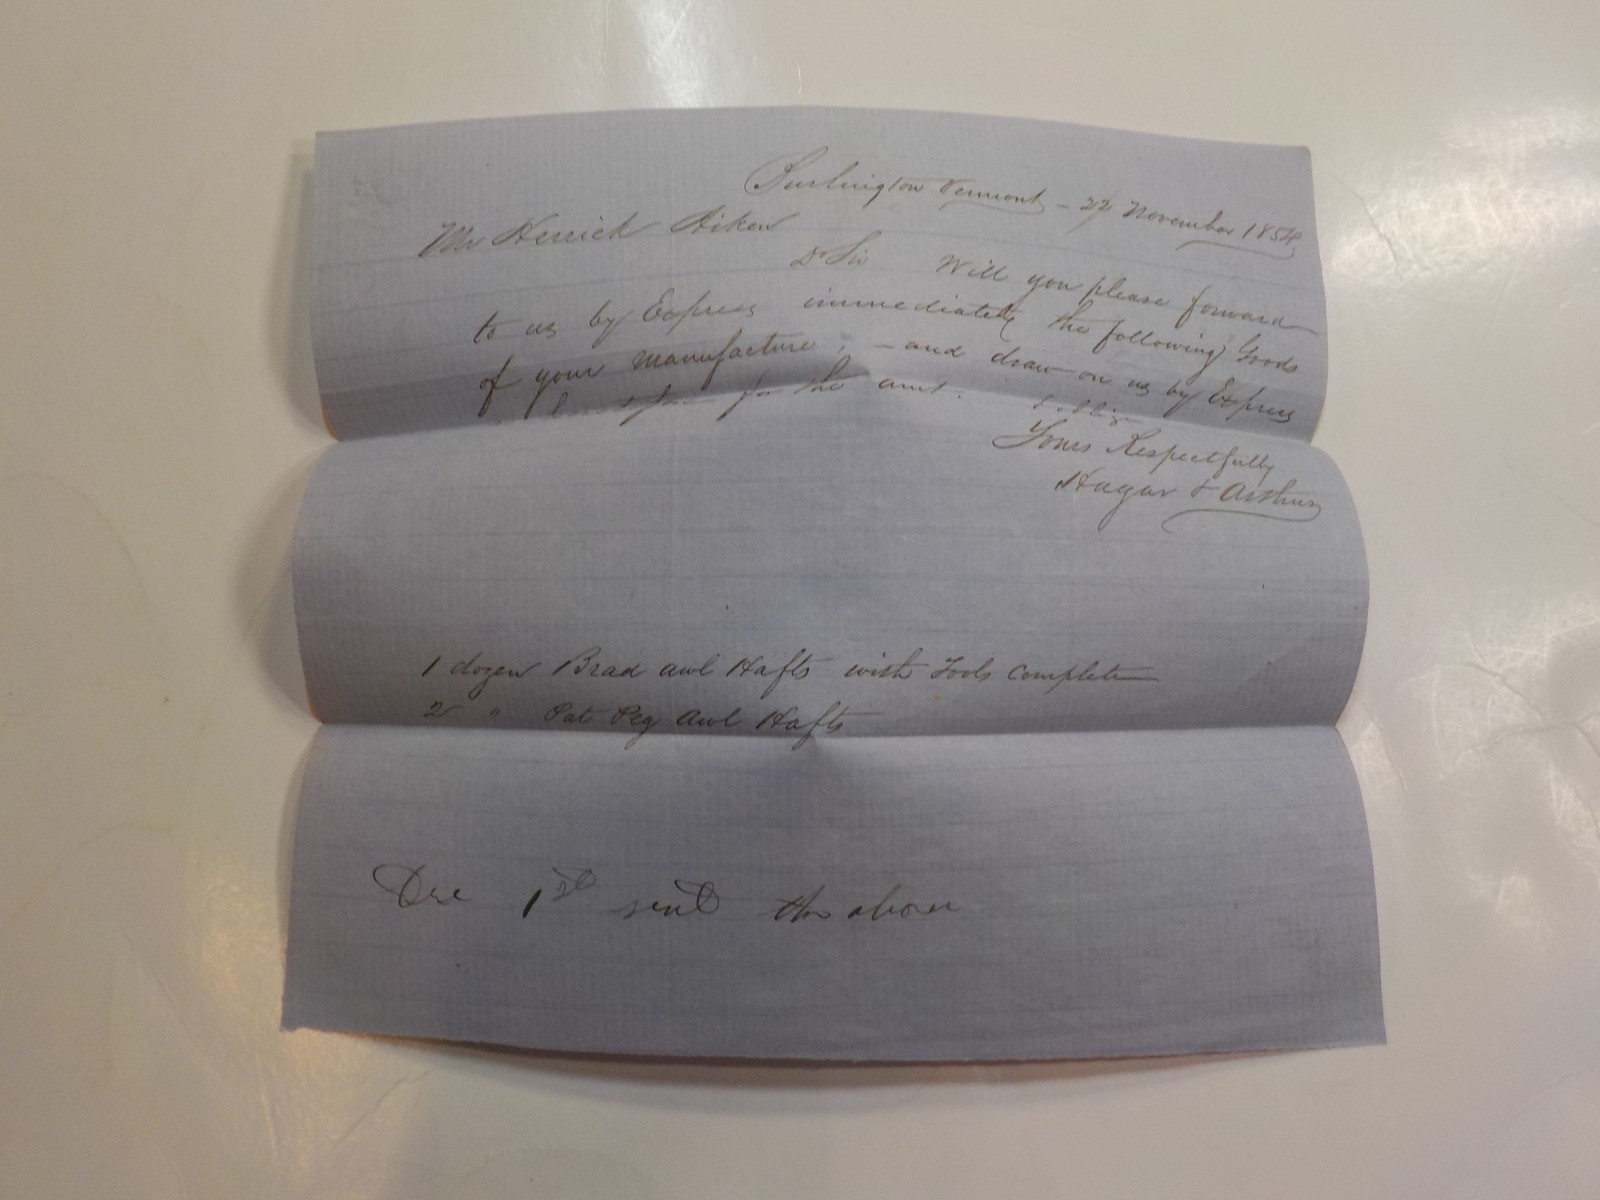 Burlington Vermont - 27 November 1854
Mr Herrick Aiken
Dr Sir Will you please forward
to us by Express immediately the following Goods
of your manufacture; - and draw on us by Express
for the amt.
Yours Respectfully
Hagar & Arthur
1 dozen Brad awl Hafts with Tools complete
2 " Pat Peg Awl Hafts
Dec 1st sent the above